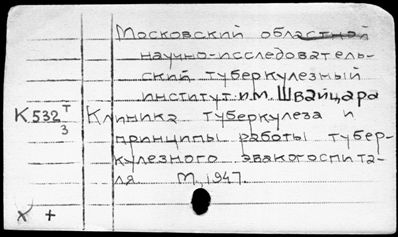 Московский областной
научно-исследователь-
ский туберкулезный
институт и.м. Швайцара
К532 Т/3 Клиника туберкулеза и
принципы работы тубер-
кулезного эвакогоспита-
ля. М, 1947.
х +